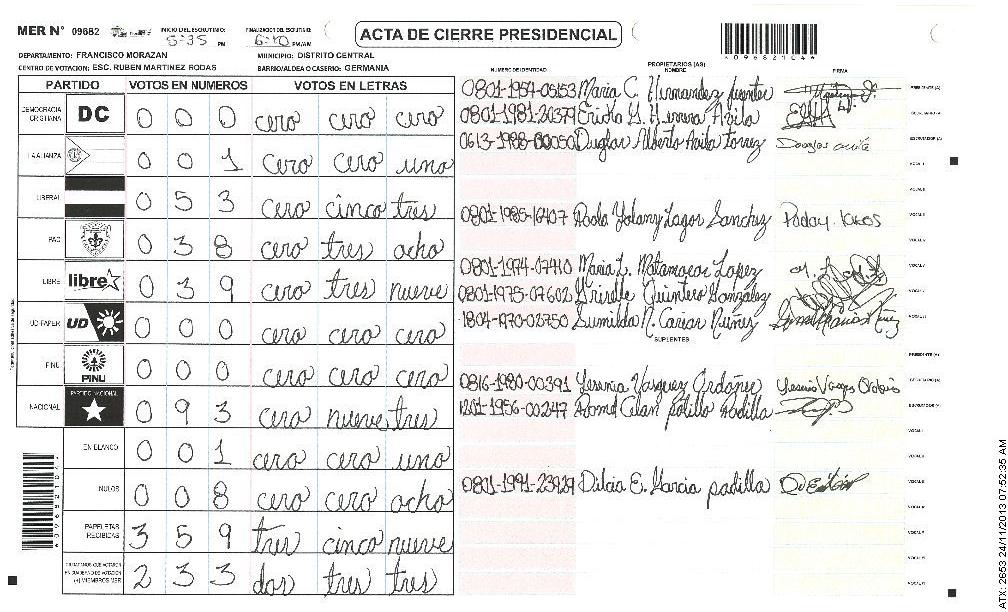 MER N° 09682 INICIO DEL ESCRUTINIO: 5:35 PM FINALIZACION DEL ESCRUTINIO: 6:10 PM/AM ACTA DE CIERRE PRESIDENCIAL *09682104*
DEPARTAMENTO: FRANCISCO MORAZAN MUNICIPIO: DISTRITO CENTRAL
CENTRO DE VOTACION: ESC. RUBEN MARTINEZ RODAS BARRIO/ALDEA O CASERIO: GERMANIA
NUMERO DE IDENTIDAD PROPIETARIOS (AS) NOMBRE FIRMA
PARTIDO VOTOS EN NUMEROS VOTOS EN LETRAS
DEMOCRACIA CRISTIANA DC 0 0 0 cero cero cero
LA ALIANZA 0 0 1 cero cero uno
LIBERAL 0 5 3 cero cinco tres
PAC 0 3 8 cero tres ocho
LIBRE libre 0 3 9 cero tres nueve
UD-FAPER UD 0 0 0 cero cero cero
PINU PINU 0 0 0 cero cero cero
NACIONAL PARTIDO NACIONAL 0 9 3 cero nueve tres
EN BLANCO 0 0 1 cero cero uno
NULOS 0 0 8 cero cero ocho
PAPELETAS RECIBIDAS 3 5 9 tres cinco nueve
CIUDADANOS QUE VOTARON EN CUADERNO DE VOTACION (+) MIEMBROS MER 2 3 3 dos tres tres
0801-1954-05153 Maria C. Hernandez fuentes PRESIDENTE (A)
0801-1981-20379 Ericka G. Herrera Avila SECRETARIO (A)
0613-1988-00050 Duglas Alberto Avila Torrez Douglas avila ESCRUTADOR (A)
VOCAL I
VOCAL II
0801-1985-16407 Paola Yolany Lagos Sanchez VOCAL III
VOCAL IV
0801-1974-07410 Maria L. Matamoros Lopez VOCAL V
0801-1975-07602 Griselle Quintero Gonzalez
1804-1970-02750 Sumilda N. Carias Nuñez
SUPLENTES
PRESIDENTE (A)
0816-1980-00391 Yesenia Vasquez Ordoñez SECRETARIO (A)
1201-1956-00247 Padilla ESCRUTADOR (A)
VOCAL I
VOCAL II
0801-1991-23929 Dilcia E. Garcia padilla VOCAL III
VOCAL IV
VOCAL V
*09682104*
ATX: 2653 24/11/2013 07:52:35 AM